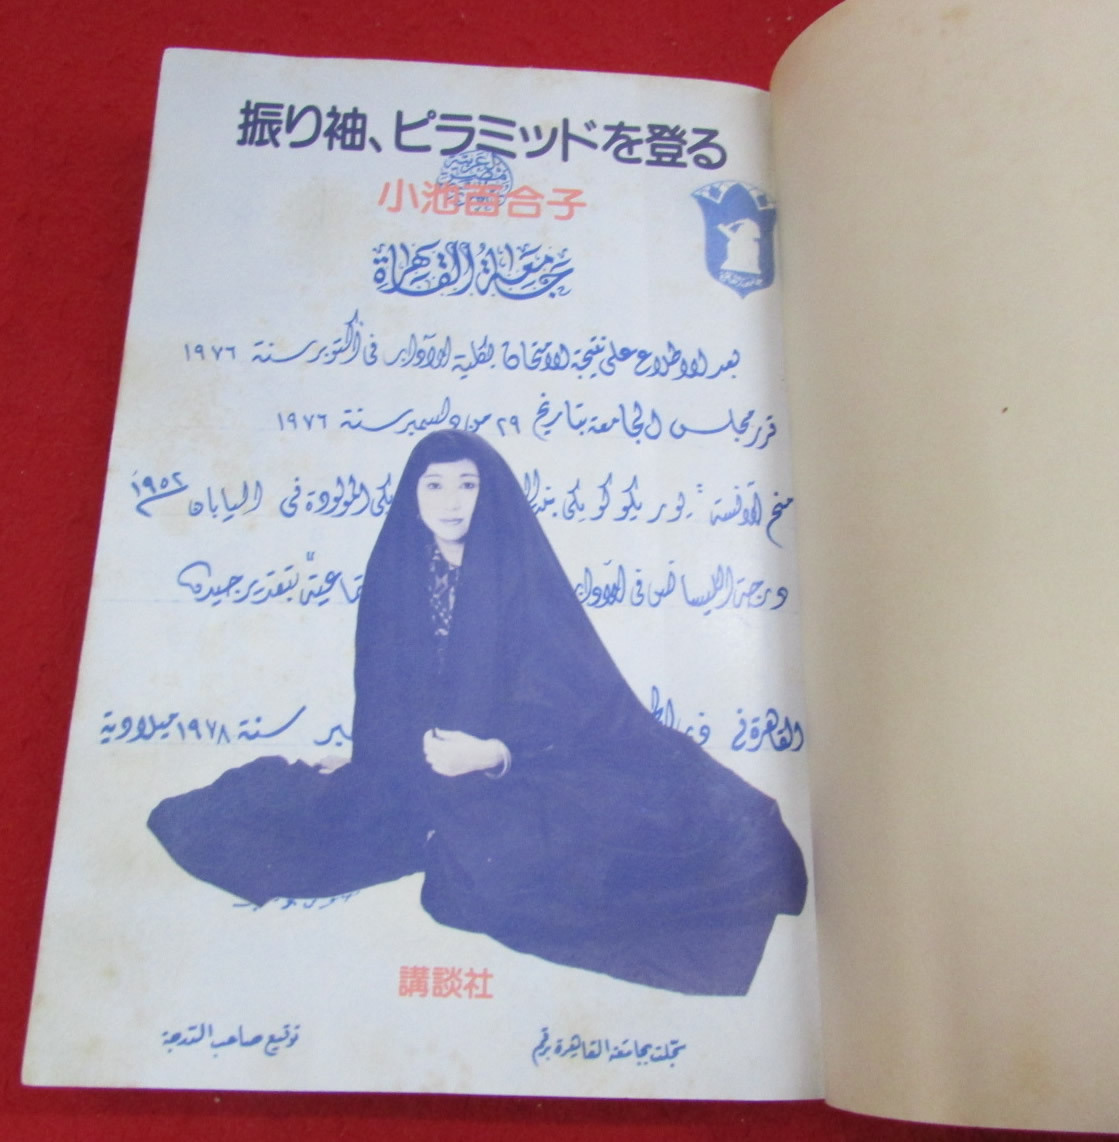 振り袖、ピラミッドを登る
小池百合子
جامعة القاهرة
بعد الاطلاع على نتيجة الامتحان لكلية الآداب فى أكتوبر سنة ١٩٧٦
قرر مجلس الجامعة بتاريخ ٢٩ من ديسمبر سنة ١٩٧٦
منح الآنسة يوريكو كويكى المولودة فى اليابان ١٩٥٢
درجة الليسانس فى الآداب بتقدير جيد
القاهرة فى سنة ١٩٧٨ ميلادية
講談社
توقيع صاحب الدرجة
سجلت بجامعة القاهرة برقم